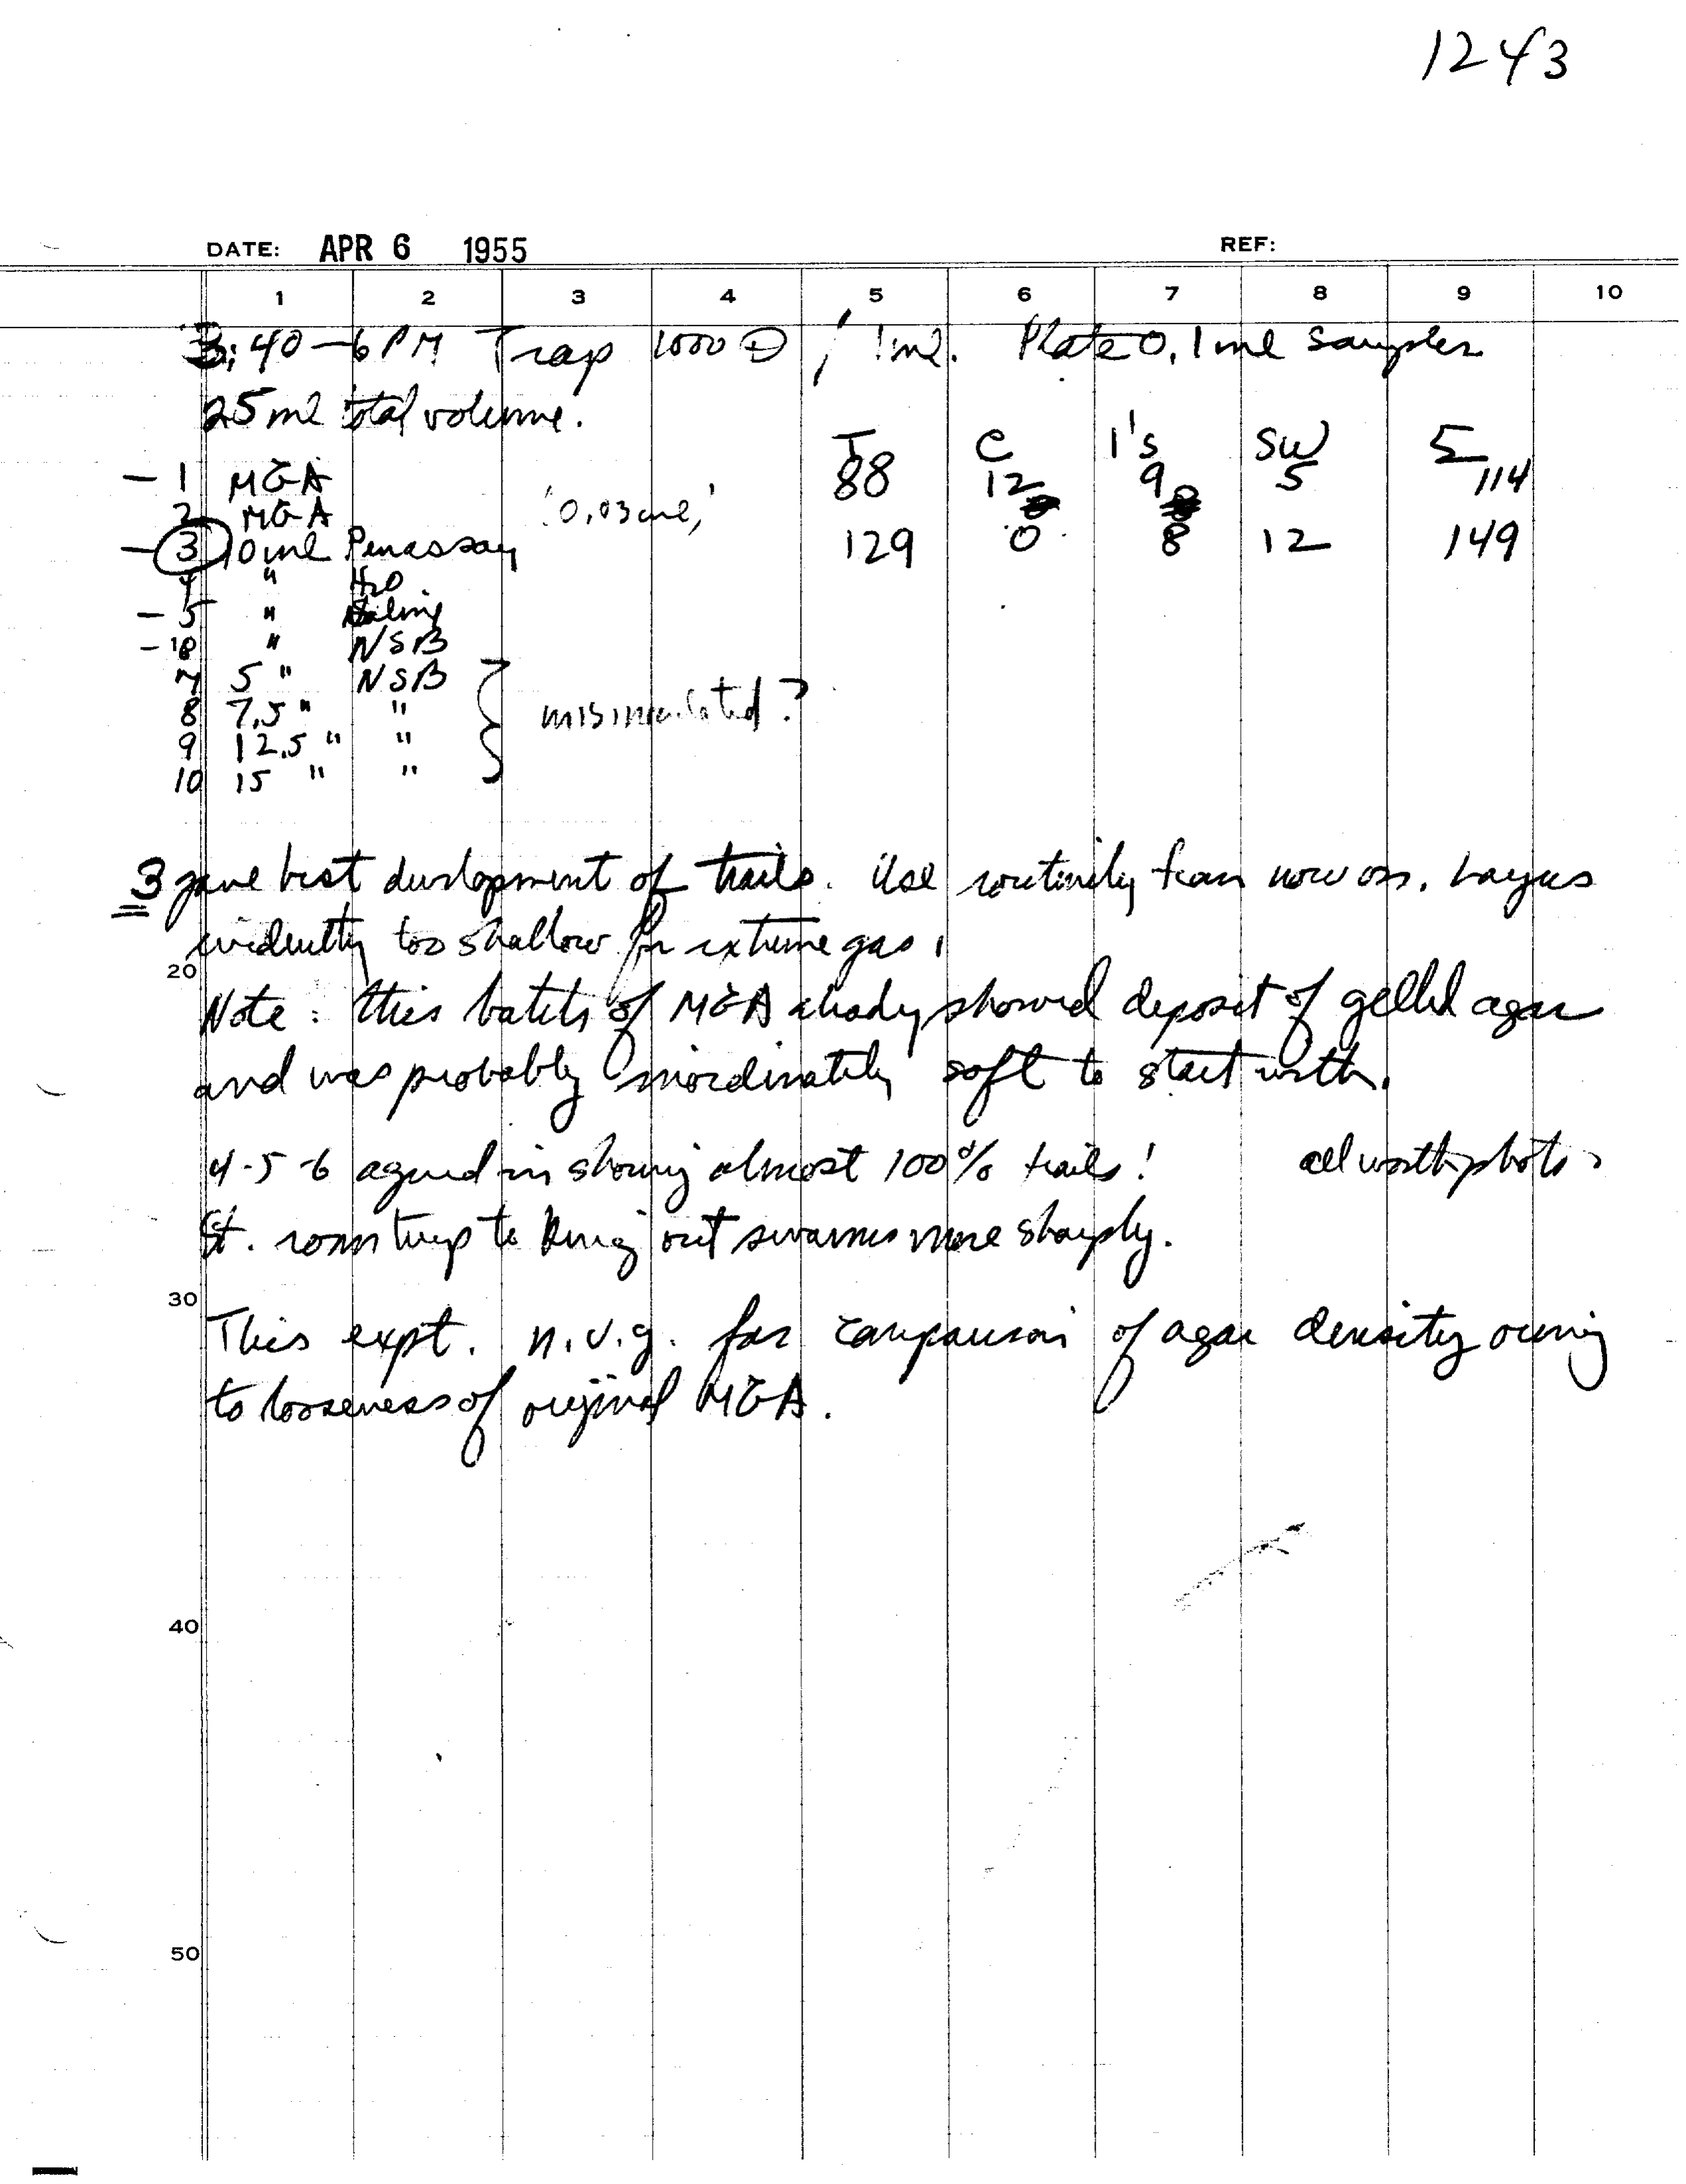 1243
DATE: APR 6 1955 REF:
1 2 3 4 5 6 7 8 9 10
3:40-6 PM Trap 1000 / 1ml. Plate 0.1 ml samples
25 ml total volume.
T C 1's SW Σ
- 1 MGA 88 12 9 5 114
2 MGA '0.03 ml,'
- 3 10 ml Penassay 129 0 8 12 149
4 " H2O
- 5 " Saline
" NSB
7 5 " NSB
8 7.5 " " misinoculated?
9 12.5 " "
10 15 " "
3 gave best development of trails. Use routinely from now on. Layers
evidently too shallow for extreme gas.
20
Note: this batch of MGA already showed deposit of gelled agar
and was probably inordinately soft to start with.
4-5-6 agreed in showing almost 100% trails! all worth photo
St. room temp to bring out swarms more sharply.
30
This expt. n.v.g. for comparison of agar density owing
to looseness of original MGA.
40
50